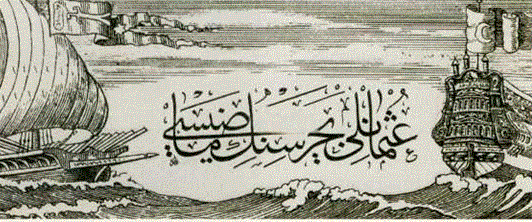 عثمانلی بحریه سنك ماضیسی